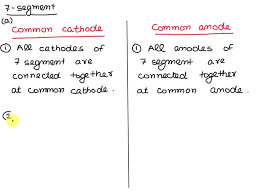 7-segment
(a)
Common cathode
① All cathodes of
7 segment are
connected together
at common cathode.
②
Common anode
① All anodes of
7 segment are
connected together
at common anode.